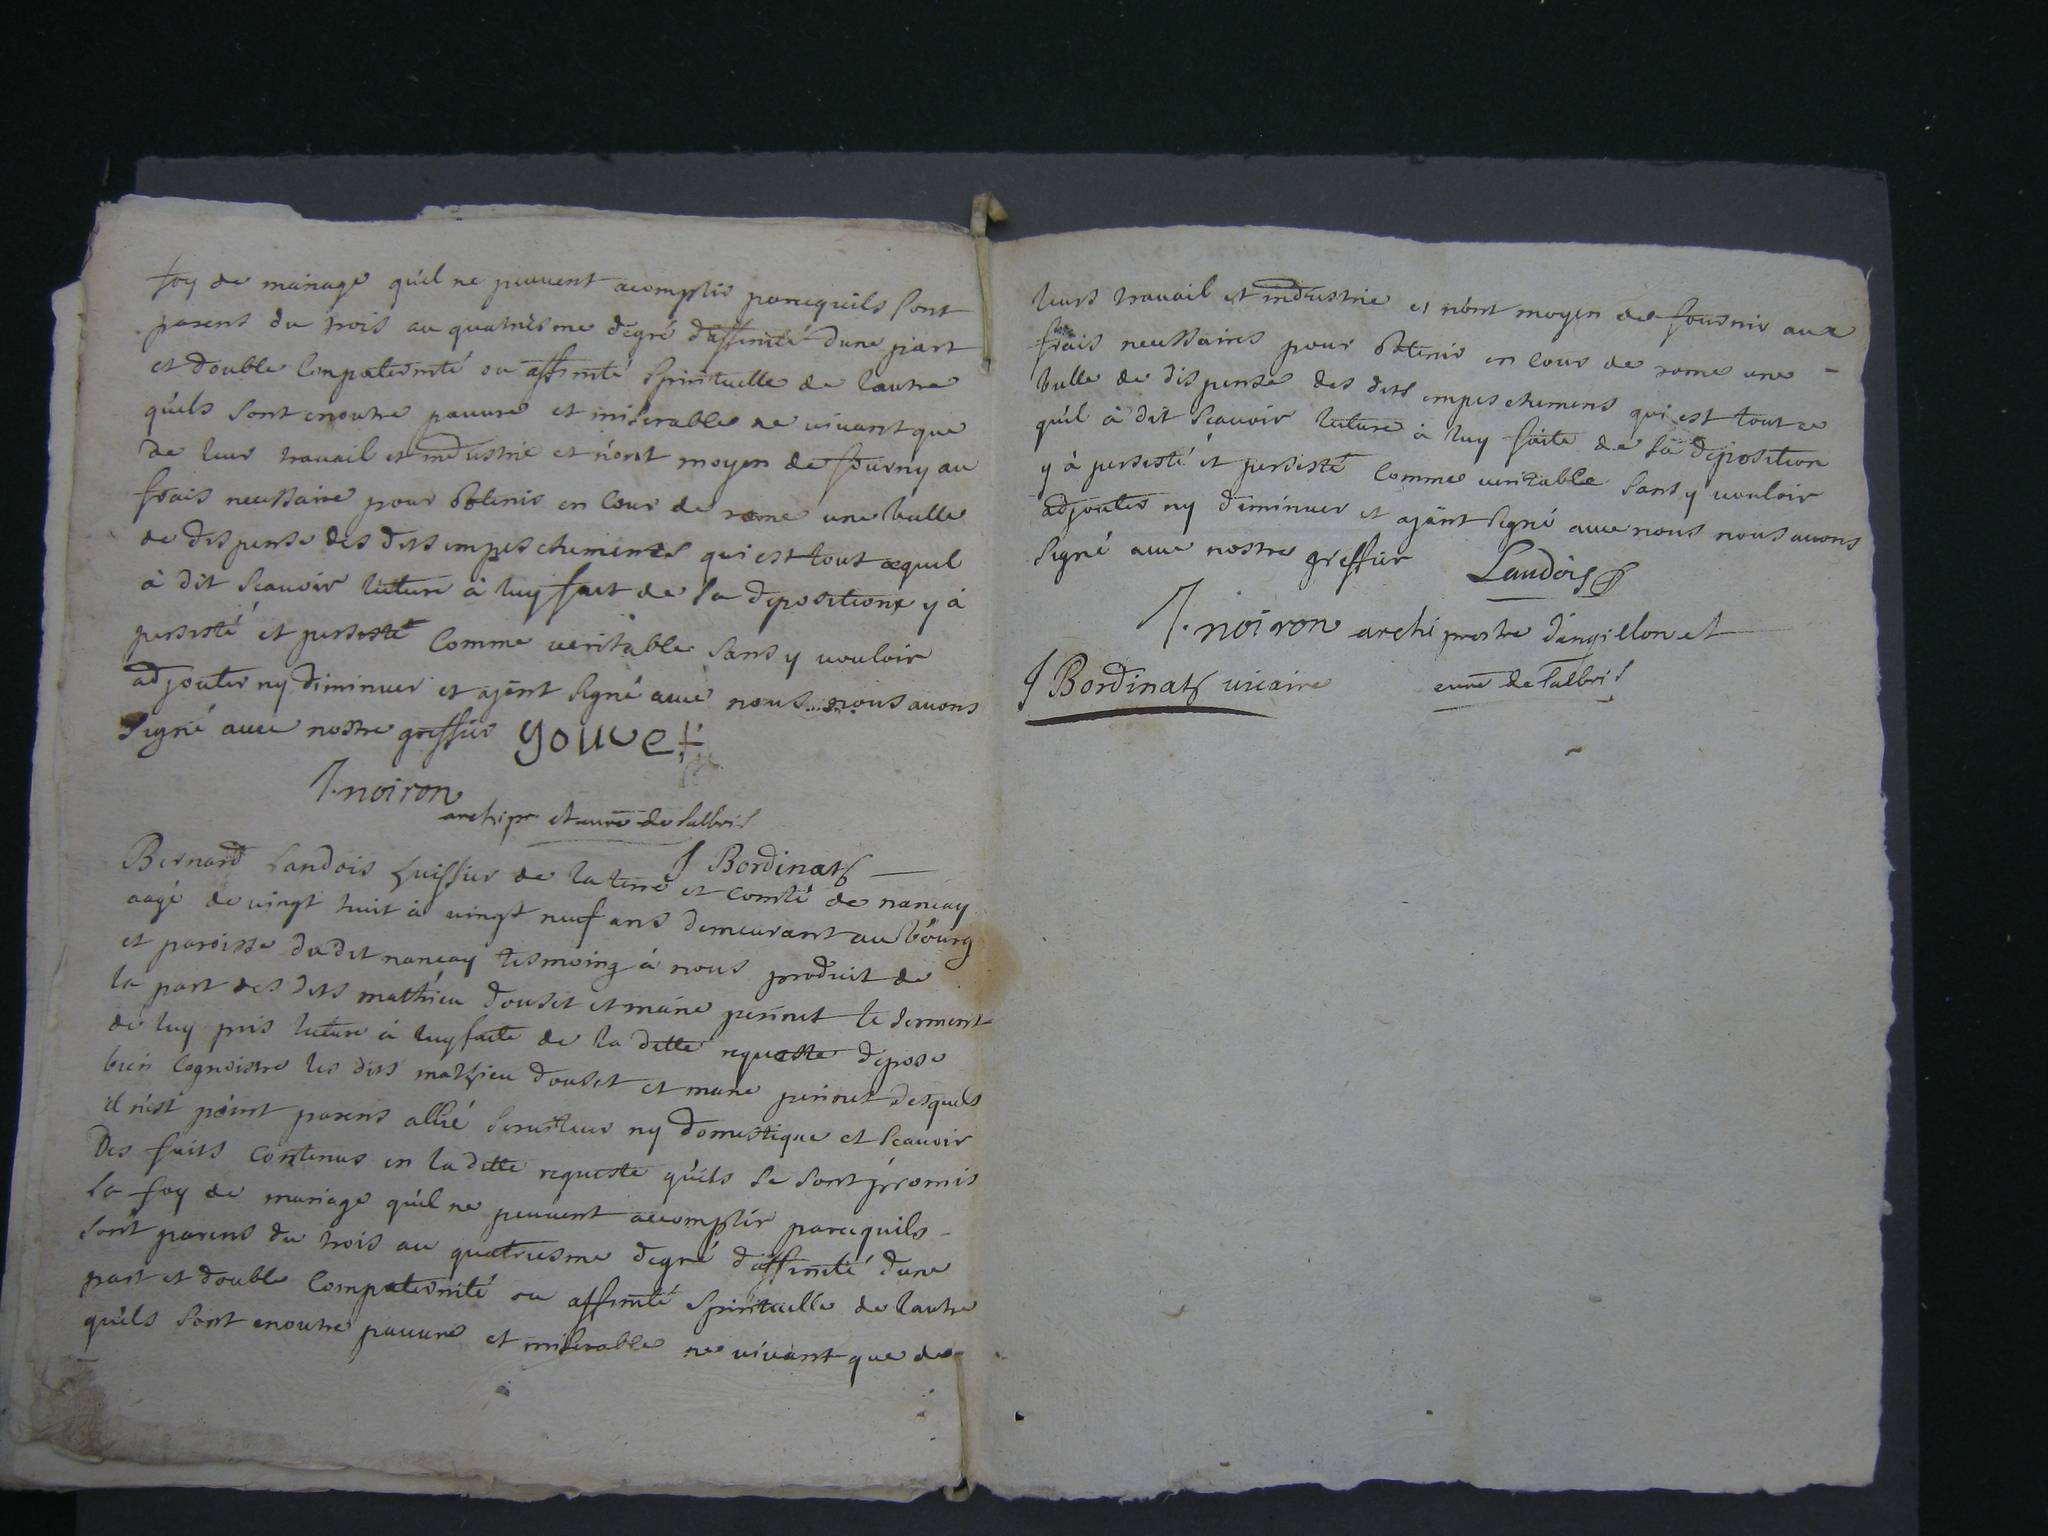 foy de mariage qu'il ne peuvent acomplir parcequils sont
parens du trois au quatriesme degré d'affinité dune part
et double Compaternité ou affinité spirituelle de lautre
quils sont enoutre pauvre et miserable ne vivant que
de leur travail et industrie et n'ont moyen de fourny au
frais necessaire pour obtenir en Cour de rome une bulle
de dispense des dits empeschements qui est tout cequil
à dit scavoir lecture à luy fait de sa deposition y à
persisté et persiste Comme veritable sans y vouloir
adjouter ny diminuer et ajant signé avec nous nous avons
signé avec nostre greffier gouvet
J. noiron
archipr et curé de salbris
J Bordinat
Bernard Landois huissier de la terre et Comté de nancay
aagé de vingt huit à vingt neuf ans demeurant au bourg
et paroisse du dit nancay tesmoing à nous produit de
la part des dits mathieu douset et marie perinet le serment
de luy pris lecture à luy faite de la ditte requeste depose
bien Cognoistre les dits mathieu douset et marie perinet desquels
il n'est point parens allié serviteur ny domestique et scavoir
Des faits Contenus en laditte requeste quils se sont promis
la foy de mariage quil ne peuvent accomplir parcequils
sont parens du trois au quatriesme degré d'affinité dune
part et double Compaternité ou affinité spirituelle de lautre
quils sont enoutre pauvre et miserable ne vivant que de
leurs travail et industrie et n'ont moyen de fournir aux
frais necessaires pour obtenir en Cour de rome une
bulle de dispense des dits empeschemens qui est tout ce
quil à dit scavoir lecture à luy faite de sa deposition
y à persisté et persiste Comme veritable sans y vouloir
adjouter ny diminuer et ajant signé avec nous nous avons
signé avec nostre greffier Landois
J. noiron archiprestre d'angillon et
J Bordinat vicaire curé de salbris